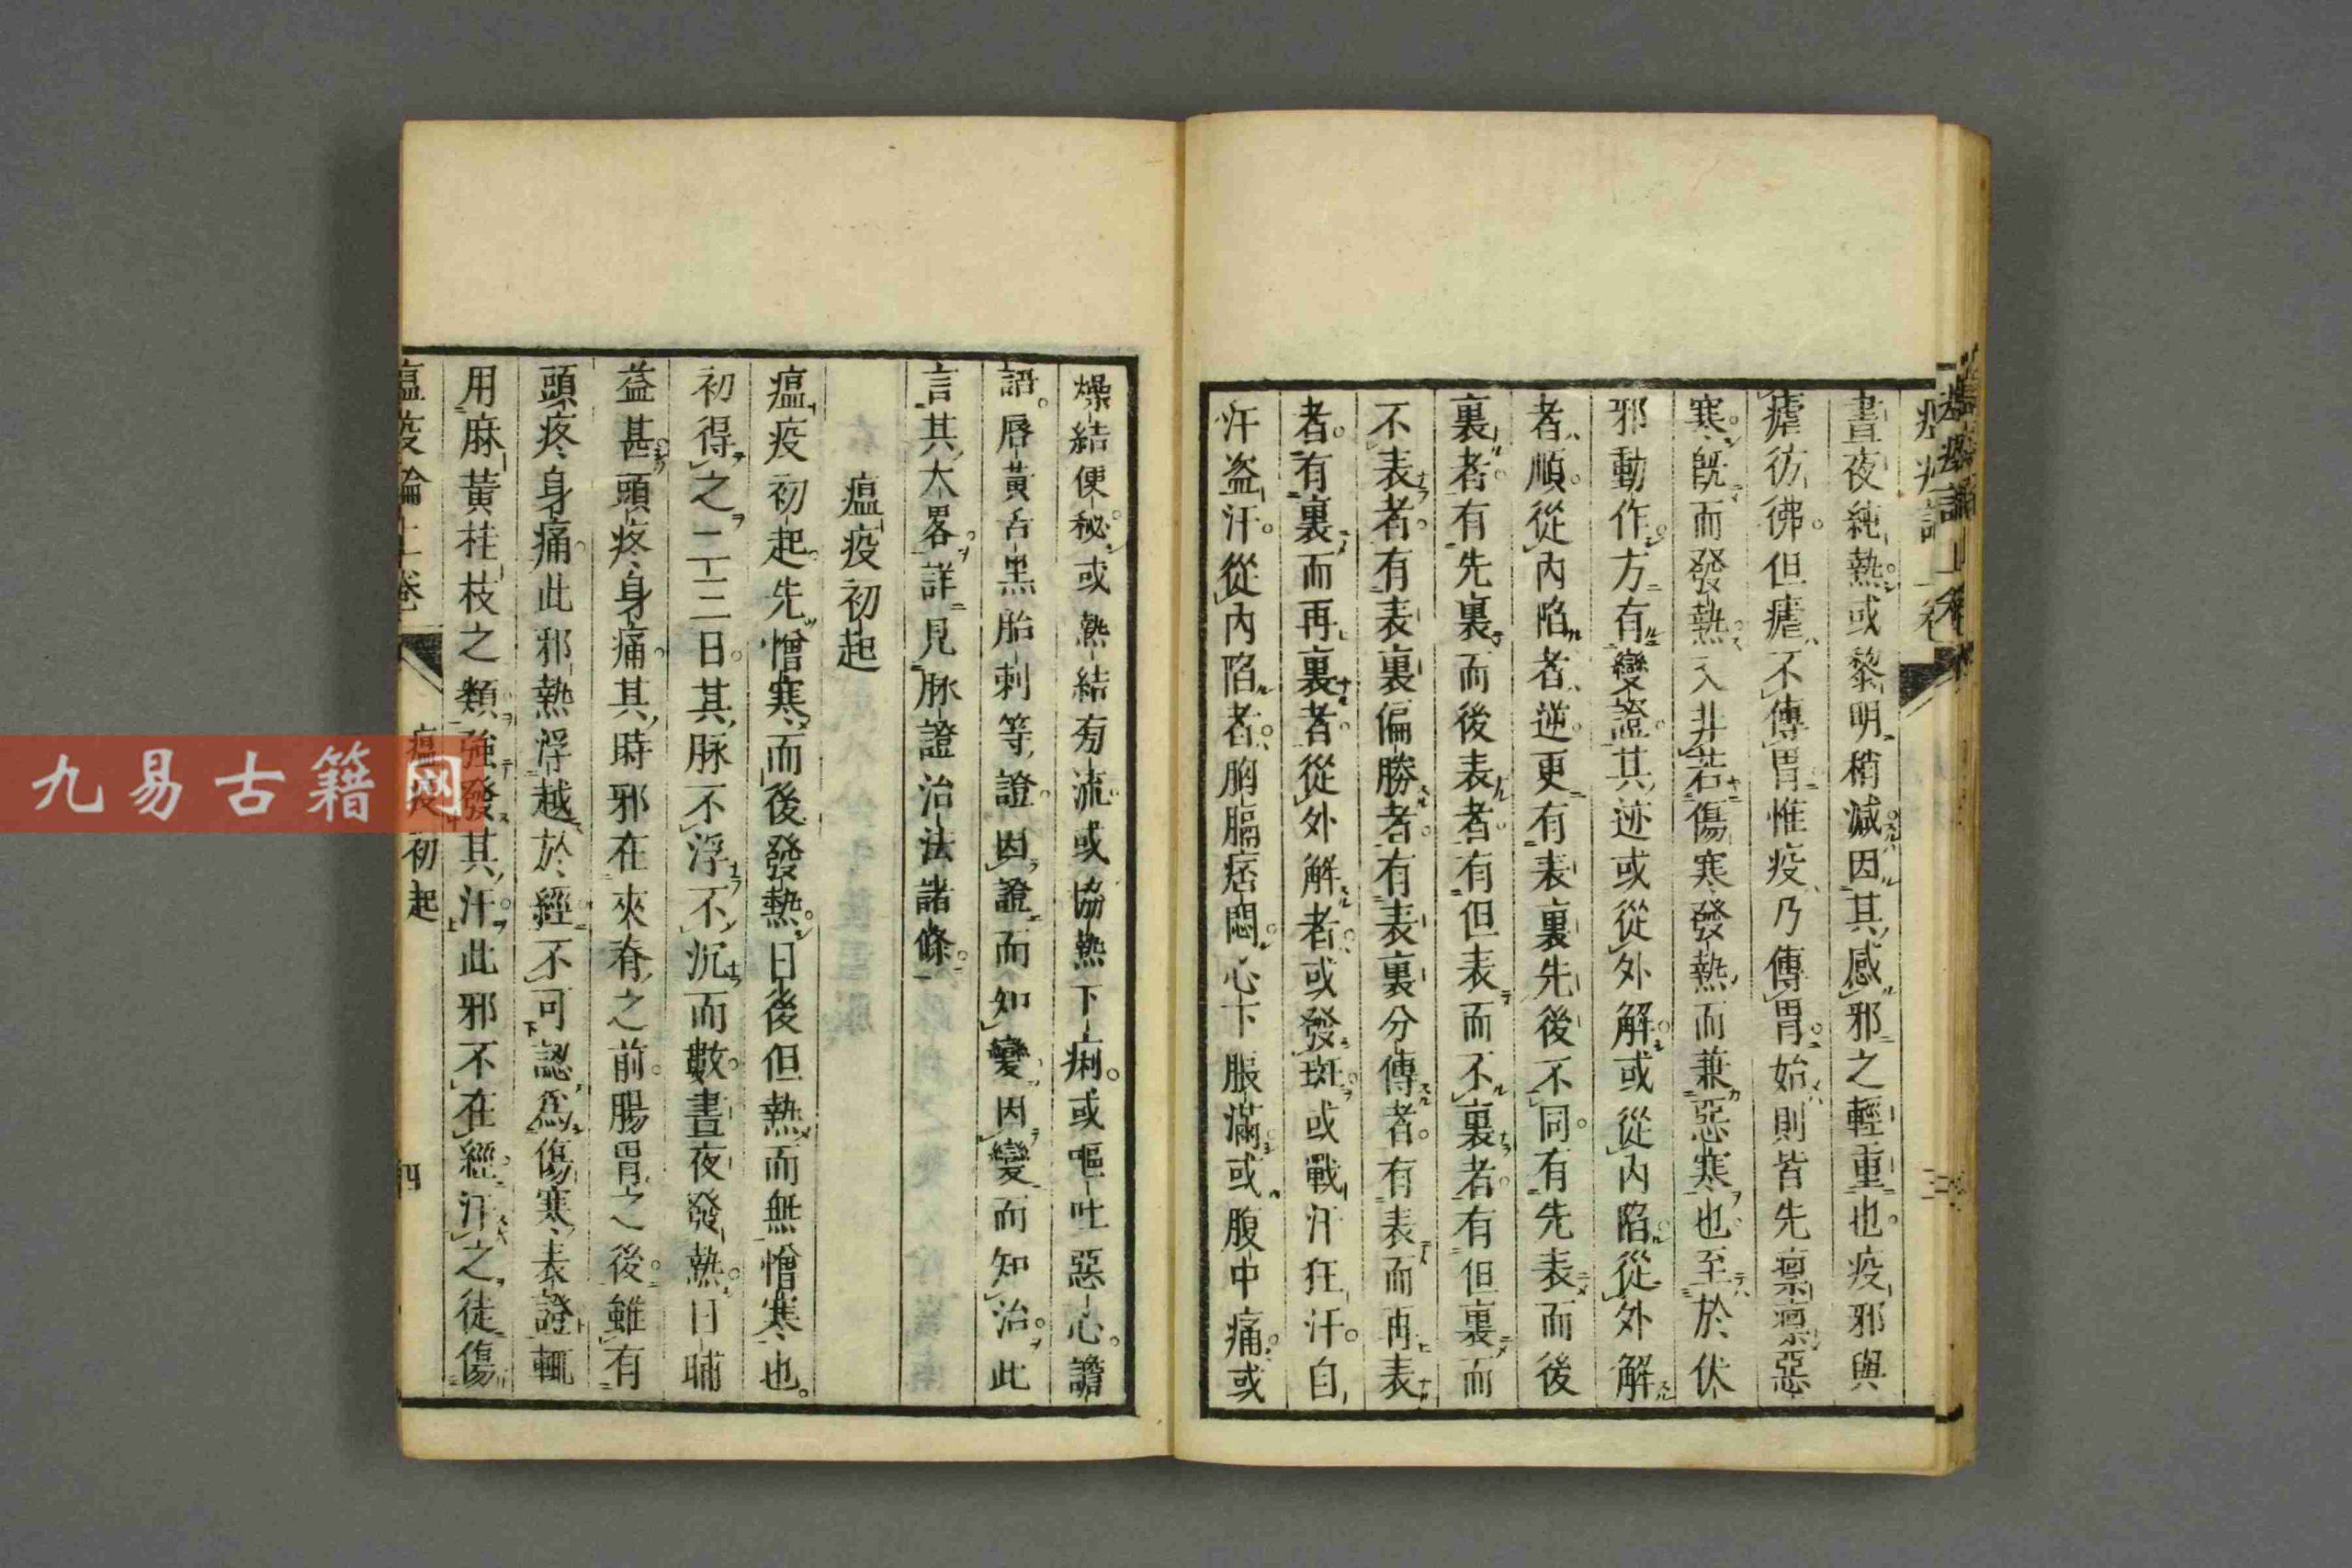 晝夜純熱或黎明稍減因其感邪之輕重也疫邪與
瘧彷彿但瘧不傳胃惟疫乃傳胃始則皆先凛凛惡
寒既而發熱又非若傷寒發熱而兼惡寒也至於伏
邪動作方有變證其迹或從外解或從內陷從外解
者順從內陷者逆更有表裏先後不同有先表而後
裏者有先裏而後表者有但表而不裏者有但裏而
不表者有表裏偏勝者有表裏分傳者有表而再表
者有裏而再裏者從外解者或發斑或戰汗狂汗自
汗盗汗從內陷者胸膈痞悶心下脹滿或腹中痛或
燥結便秘或熱結旁流或協熱下痢或嘔吐惡心譫
語唇黃舌黑胎刺等證因證而知變因變而知治此
言其大畧詳見脉證治法諸條
瘟疫初起
瘟疫初起先憎寒而後發熱日後但熱而無憎寒也
初得之二三日其脉不浮不沉而數晝夜發熱日晡
益甚頭疼身痛其時邪在夾脊之前腸胃之後雖有
頭疼身痛此邪熱浮越於經不可認爲傷寒表證輒
用麻黃桂枝之類強發其汗此邪不在經汗之徒傷
瘟疫論上卷 瘟疫初起 四
九易古籍网